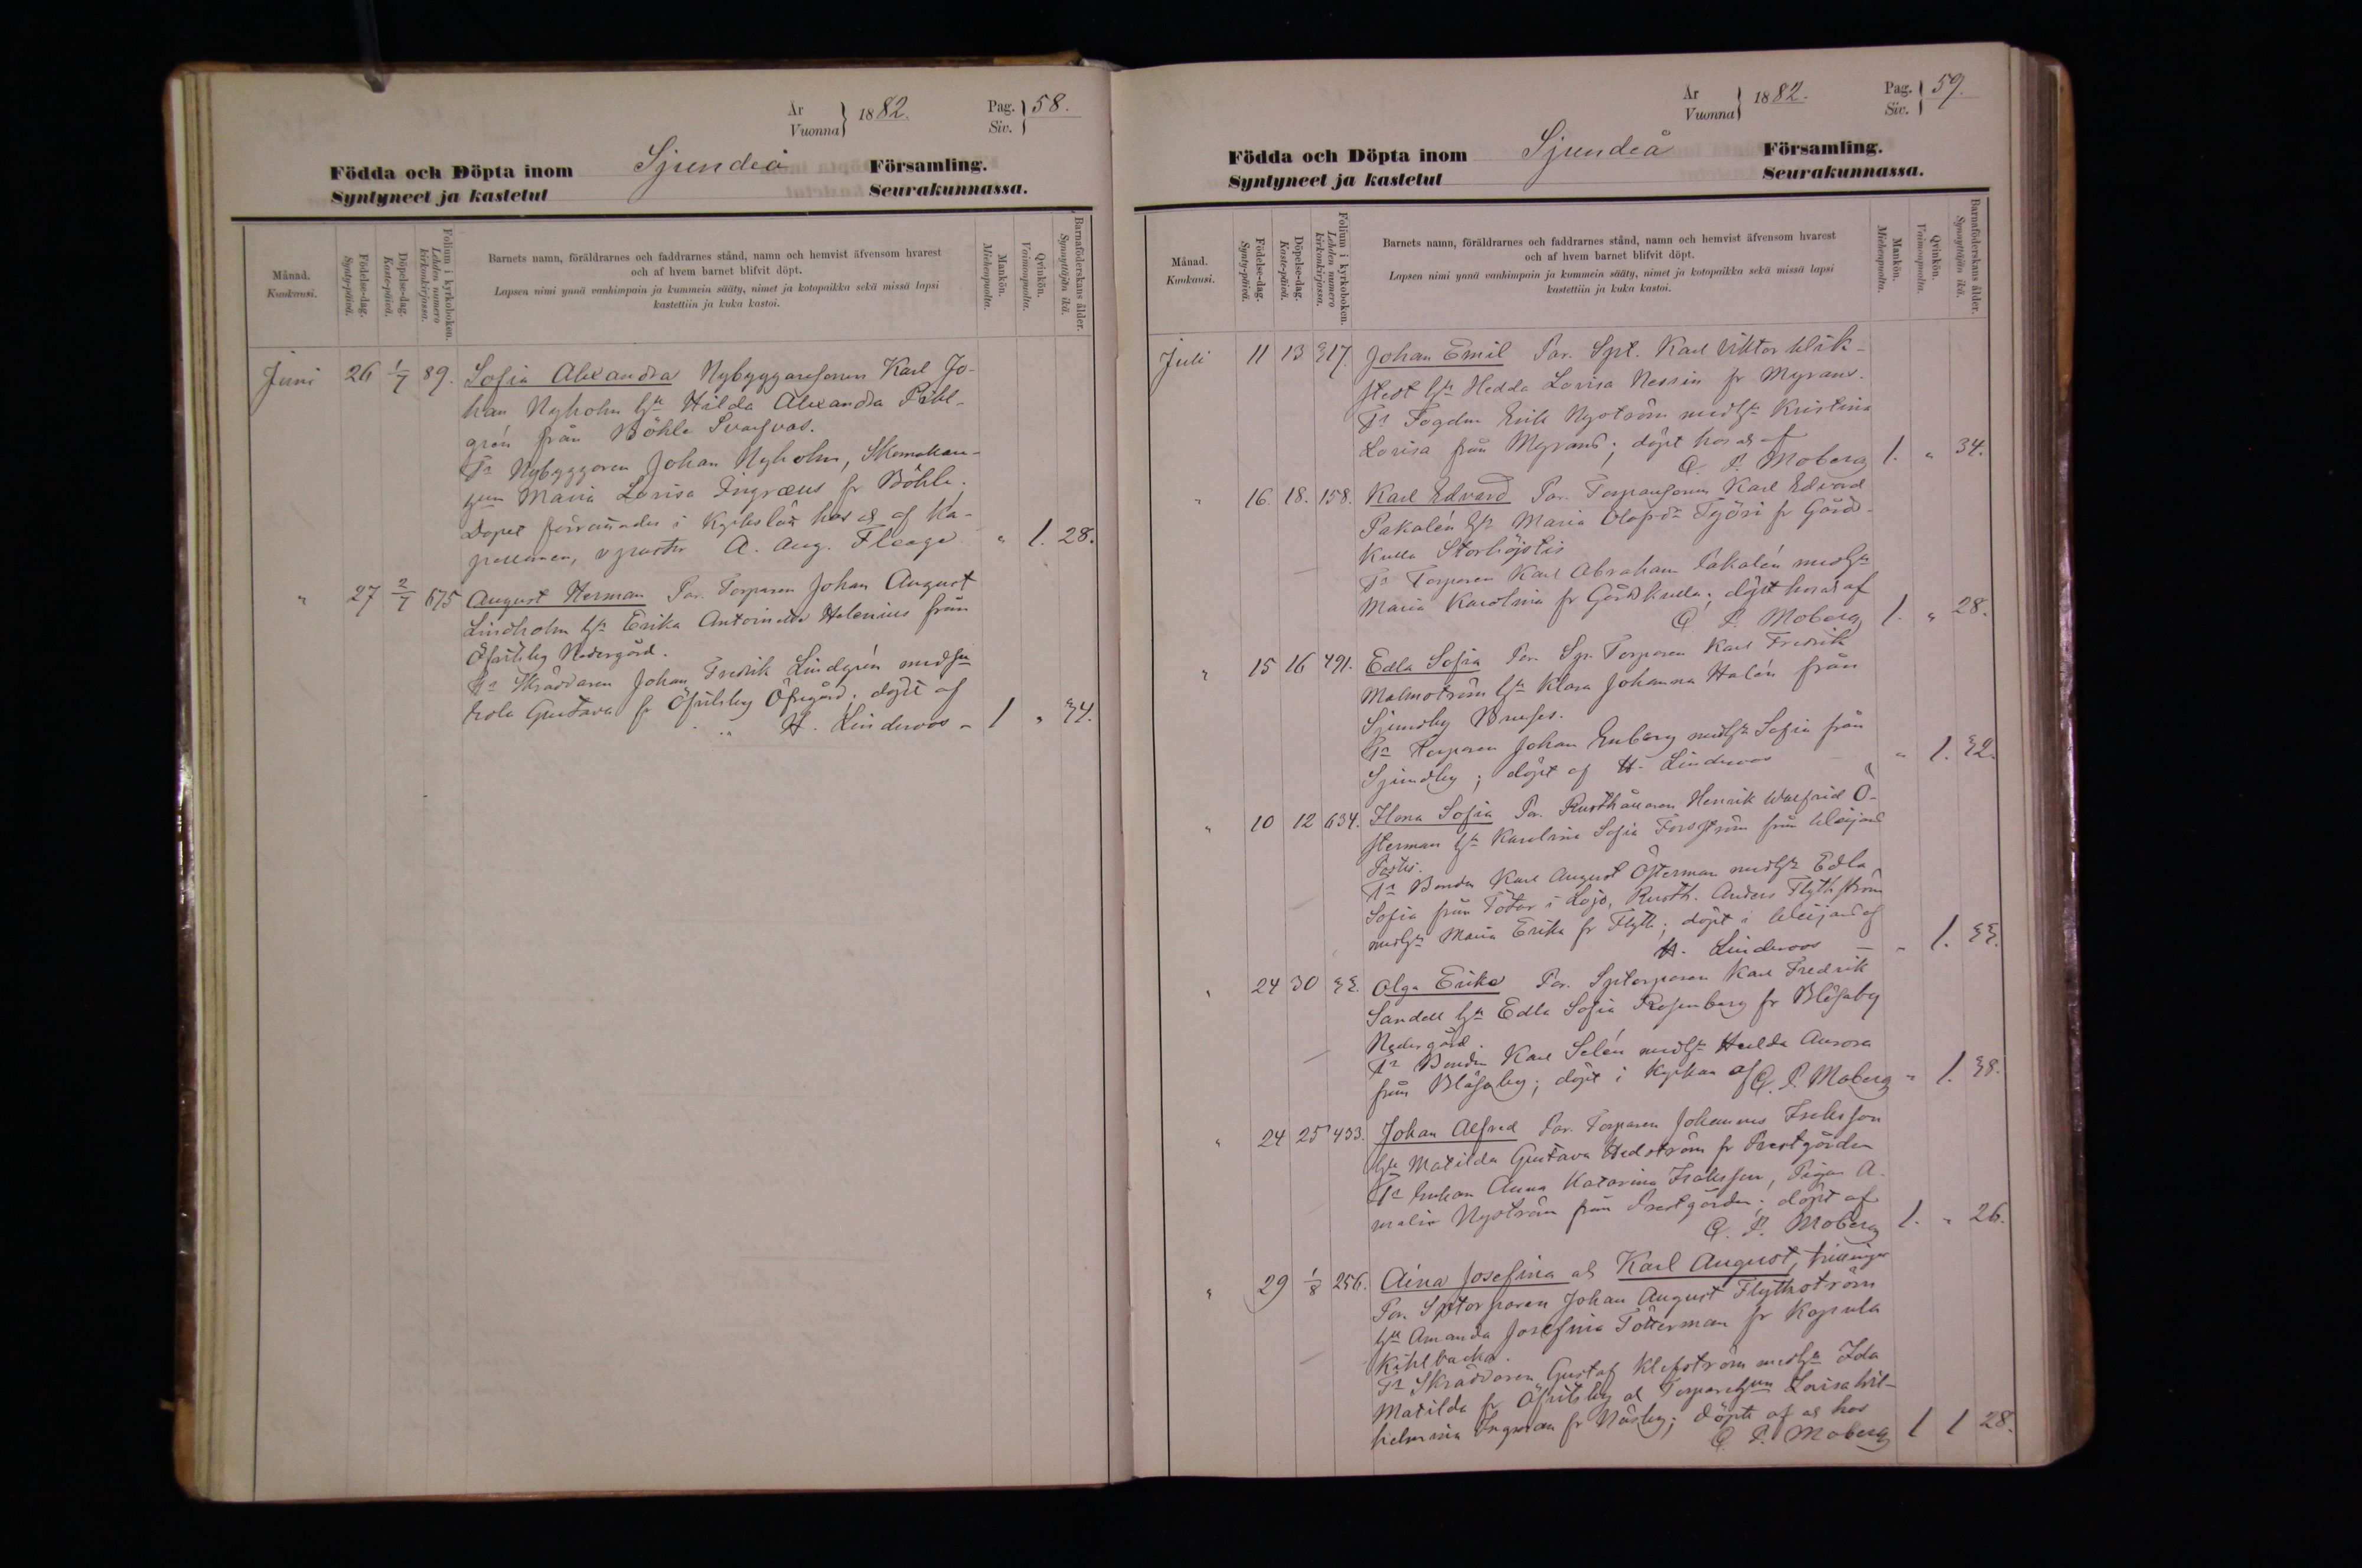 År
Vuonna
1882.
Pag.
Siv.
58.
Födda och Döpta inom Sjundeå Församling.
Syntyneet ja kastetut Seurakunnassa.
Månad.
Kuukausi.
Födelse-dag.
Synty-päivä.
Döpelse-dag.
Kaste-päivä.
Folium i kyrkoboken.
Lehden numero
kirkonkirjassa.
Barnets namn, föräldrarnes och faddrarnes stånd, namn och hemvist äfvensom hvarest
och af hvem barnet blifvit döpt.
Lapsen nimi ynnä vanhimpain ja kummein sääty, nimet ja kotopaikka sekä missä lapsi
kastettiin ja kuka kastoi.
Mankön.
Miehenpuolta.
Qvinkön.
Vaimonpuolta.
Barnaföderskans ålder.
Synnyttäjän ikä.
Juni 26 1/7 89. Sofia Alexandra Nybyggaresonen Karl Jo-
han Nyholm hst Hilda Alexandra Pihl-
grén från Böhle Svarfvas.
Fr Nybyggaren Johan Nyholm,
Maria Lovisa Ingraeus fr Böhle.
Döpet förrättades i Kyrkslätt hos af Ka-
pellanen, vpastor A. Aug. Fleege " 1. 28.
" 27 2/7 675 August Herman Par. Torparen Johan August
Lindholm hst Erika Antoinette Helenius från
Öfvitsby Nedergård.
Fr Skräddaren Johan Fredrik Lindgrén med hst
Gustava fr Öfvitsby Öfvergård; döpt af
H. Lindroos 1 " 34.
År
Vuonna
1882.
Pag.
Siv.
59.
Födda och Döpta inom Sjundeå Församling.
Syntyneet ja kastetut Seurakunnassa.
Månad.
Kuukausi.
Födelse-dag.
Synty-päivä.
Döpelse-dag.
Kaste-päivä.
Folium i kyrkoboken.
Lehden numero
kirkonkirjassa.
Barnets namn, föräldrarnes och faddrarnes stånd, namn och hemvist äfvensom hvarest
och af hvem barnet blifvit döpt.
Lapsen nimi ynnä vanhimpain ja kummein sääty, nimet ja kotopaikka sekä missä lapsi
kastettiin ja kuka kastoi.
Mankön.
Miehenpuolta.
Qvinkön.
Vaimonpuolta.
Barnaföderskans ålder.
Synnyttäjän ikä.
Juli 11 13 317. Johan Emil Par. Spt. Karl Viktor Wik-
stedt hst Hedda Lovisa Nessin fr Myrans.
Fr Fogden Erik Nyström med hst Kristina
Lovisa från Myrans; döpt hos af
Q. P. Moberg 1. " 34.
" 16. 18. 158. Karl Edvard Par. Torparesonen Karl Edvard
Pakalén hst Maria Olofsdr Työri fr Gårds-
kulla Storhöjstis
Fr Torparen Karl Abraham Pakalén med hst
Maria Karolina fr Gårdskulla; döpt hos af
Q. P. Moberg 1. " 28.
" 15 16 491. Edla Sofia Par. Sp. Torparen Karl Fredrik
Malmström hst Klara Johanna Halén från
Sjundby Bruses.
Fr Torparen Johan Enberg med hst Sofia från
Sjundby; döpt af H. Lindroos " 1. 32.
" 10 12 634. Ilona Sofia Par. Rusthållaren Henrik Walfrid Ö-
sterman hst Karolina Sofia Forsström från Weijans
Fr Bonden Karl August Österman med hst Edla
Sofia från Tötar i Lojo, Rusth. Anders Flythström
med hst Maria Erika fr Flyth; döpt i Weijans af
H. Lindroos " 1. 33.
" 24 30 33. Olga Erika Par. Sptorparen Karl Fredrik
Sandell hst Edla Sofia Rosenberg fr Blåsaby
Nedergård.
Fr Bonden Karl Selén med hst Hulda Aurora
från Blåsaby; döpt i Kyrkan af Q. P. Moberg " 1. 38.
" 24 25 433. Johan Alfred Par. Torparen Johannes Isaksson
hst Matilda Gustava Hedström fr Prestgården
Fr Enkan Anna Katarina Isaksson, Pigan A-
malia Nyström från Prestgården; döpt af
Q. P. Moberg 1. " 26.
" 29 1/8 256. Aina Josefina och Karl August, tvillingar
Par. Sptorparen Johan August Flythström
hst Amanda Josefina Tötterman fr Kopula
Kihlbacka.
Fr Skräddaren Gustaf Klefström med hst Ida
Matilda fr Öfvitsby och Lovisa Wil-
helmina Ingman fr Näsby; döpte af hos
Q. P. Moberg 1 1 28.